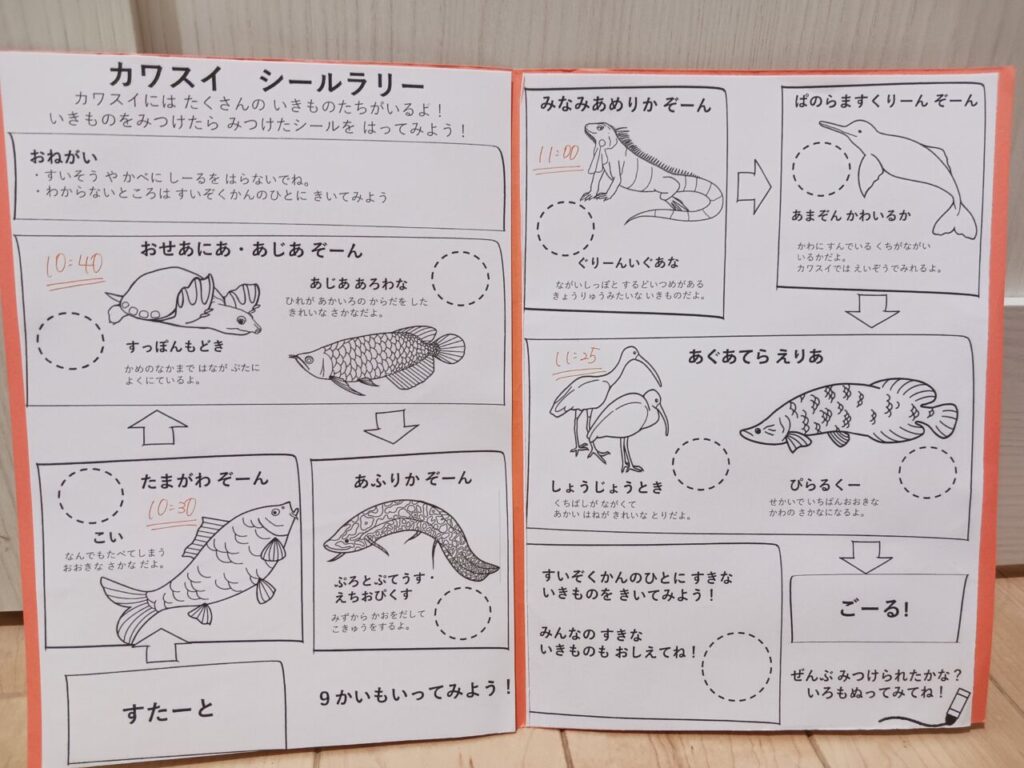 カワスイ シールラリー
カワスイには たくさんの いきものたちがいるよ！
いきものをみつけたら みつけたシールを はってみよう！
おねがい
・すいそう や かべに しーるを はらないでね。
・わからないところは すいぞくかんのひとに きいてみよう
おせあにあ・あじあ ぞーん
10:40
すっぽんもどき
かめのなかまで はなが ぶたに
よくにているよ。
あじあ あろわな
ひれが あかいろの からだを した
きれいな さかなだよ。
たまがわ ぞーん
10:30
こい
なんでもたべてしまう
おおきな さかな だよ。
あふりか ぞーん
ぷろとぷてうす・
えちおぴくす
みずから かおをだして
こきゅうをするよ。
すたーと
9かいもいってみよう！
みなみあめりか ぞーん
11:00
ぐりーんいぐあな
ながいしっぽと するどいつめがある
きょうりゅうみたいな いきものだよ。
ぱのらますくりーん ぞーん
あまぞん かわいるか
かわに すんでいる くちがながい
いるかだよ。
カワスイでは えいぞうでみれるよ。
あぐあてら えりあ
11:25
しょうじょうとき
くちばしが ながくて
あかい はねが きれいな とりだよ。
ぴらるくー
せかいで いちばんおおきな
かわの さかなになるよ。
すいぞくかんのひとに すきな
いきものを きいてみよう！
みんなの すきな
いきものも おしえてね！
ごーる!
ぜんぶ みつけられたかな？
いろもぬってみてね！